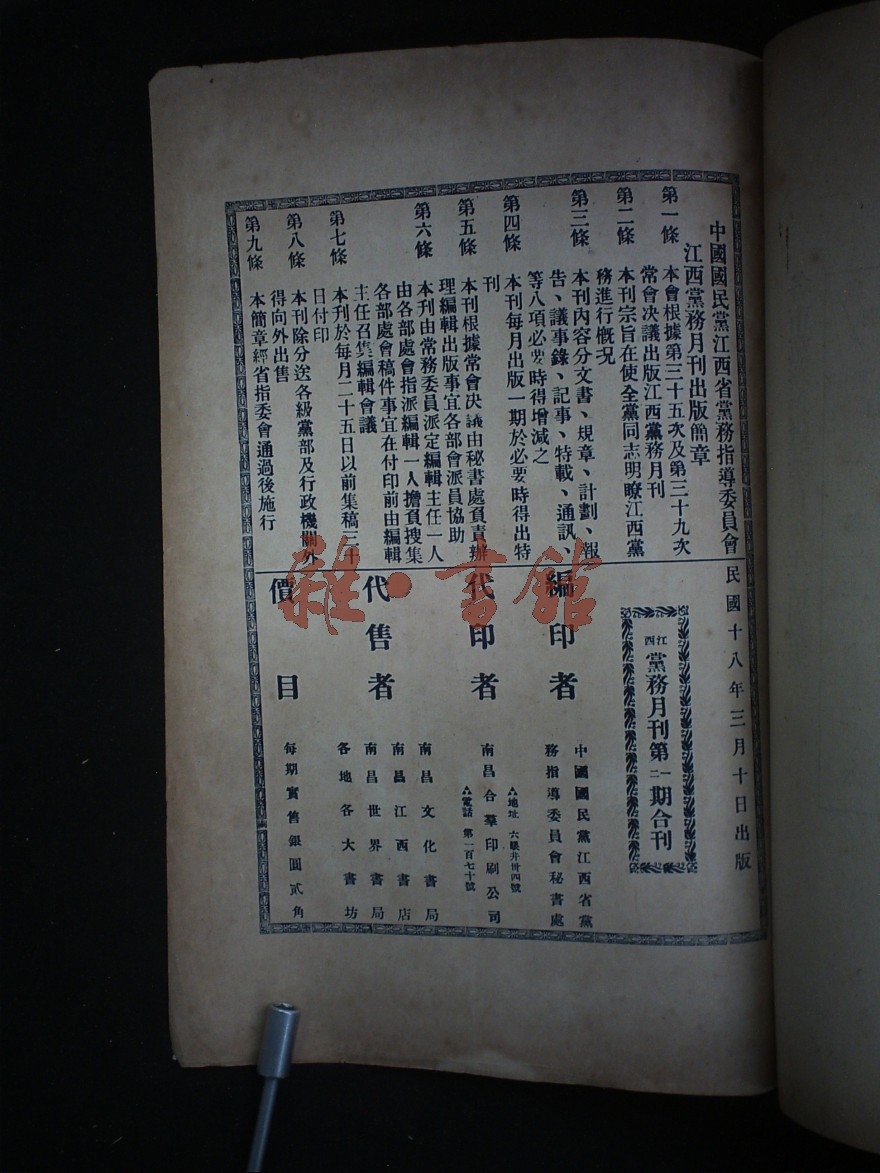 中國國民黨江西省黨務指導委員會
江西黨務月刊出版簡章
第一條　本會根據第三十五次及第三十九次
常會決議出版江西黨務月刊
第二條　本刊宗旨在使全黨同志明瞭江西黨
務進行槪况
第三條　本刊內容分文書、規章、計劃、報
告、議事錄、記事、特載、通訊、
等八項必要時得增減之
第四條　本刊每月出版一期於必要時得出特
刊
第五條　本刊根據常會決議由秘書處負責辦
理編輯出版事宜各部會派員協助
第六條　本刊由常務委員派定編輯主任一人
由各部處會指派編輯一人擔負搜集
各部處會稿件事宜在付印前由編輯
主任召集編輯會議
第七條　本刊於每月二十五日以前集稿三十
日付印
第八條　本刊除分送各級黨部及行政機關外
得向外出售
第九條　本簡章經省指委會通過後施行
民國十八年三月十日出版
江西黨務月刊第一二期合刊
編印者
中國國民黨江西省黨
務指導委員會秘書處
代印者
地址　六眼井卅四號
南昌合羣印刷公司
電話　第一百七十號
代售者
南昌文化書局
南昌江西書店
南昌世界書局
各地各大書坊
價目
每期實售銀圓貳角
雜·書館